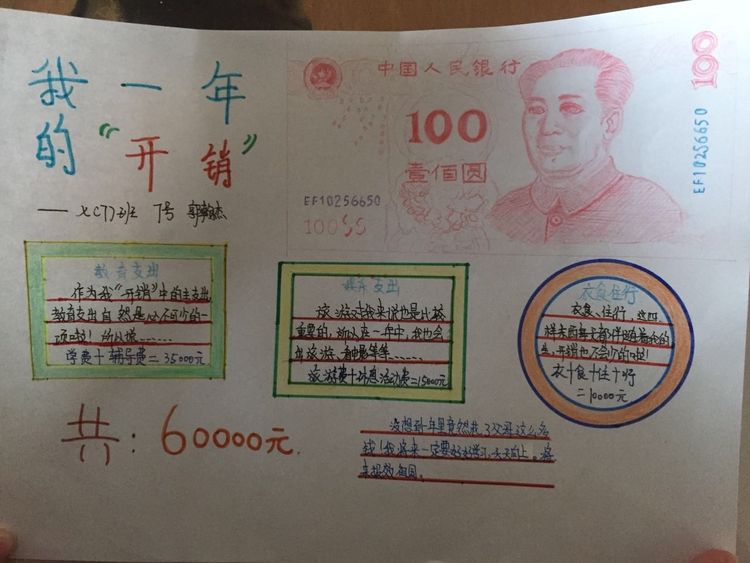 我一年
的“开销”
——七(7)班 7号
中国人民银行
100
100
壹佰圆
EF10256650
EF10256650
100
教育支出
作为我“开销”中的主支出
教育支出自然是必不可少的一
项啦！所以说……
学费+辅导费=35000元
娱乐支出
旅游对我来说也是比较
重要的，所以在一年中，我也会
去旅游、看电影等等……
旅游费+休息活动费=15000元
衣食住行
衣食、住行，这四
样东西每天都伴随着你的
生，开销也不会少的啦！
衣+食+住+行
=10000元
共：60000元
没想到一年里竟然我
钱！我将来一定要好好学习，天天向上。将
来报效祖国。